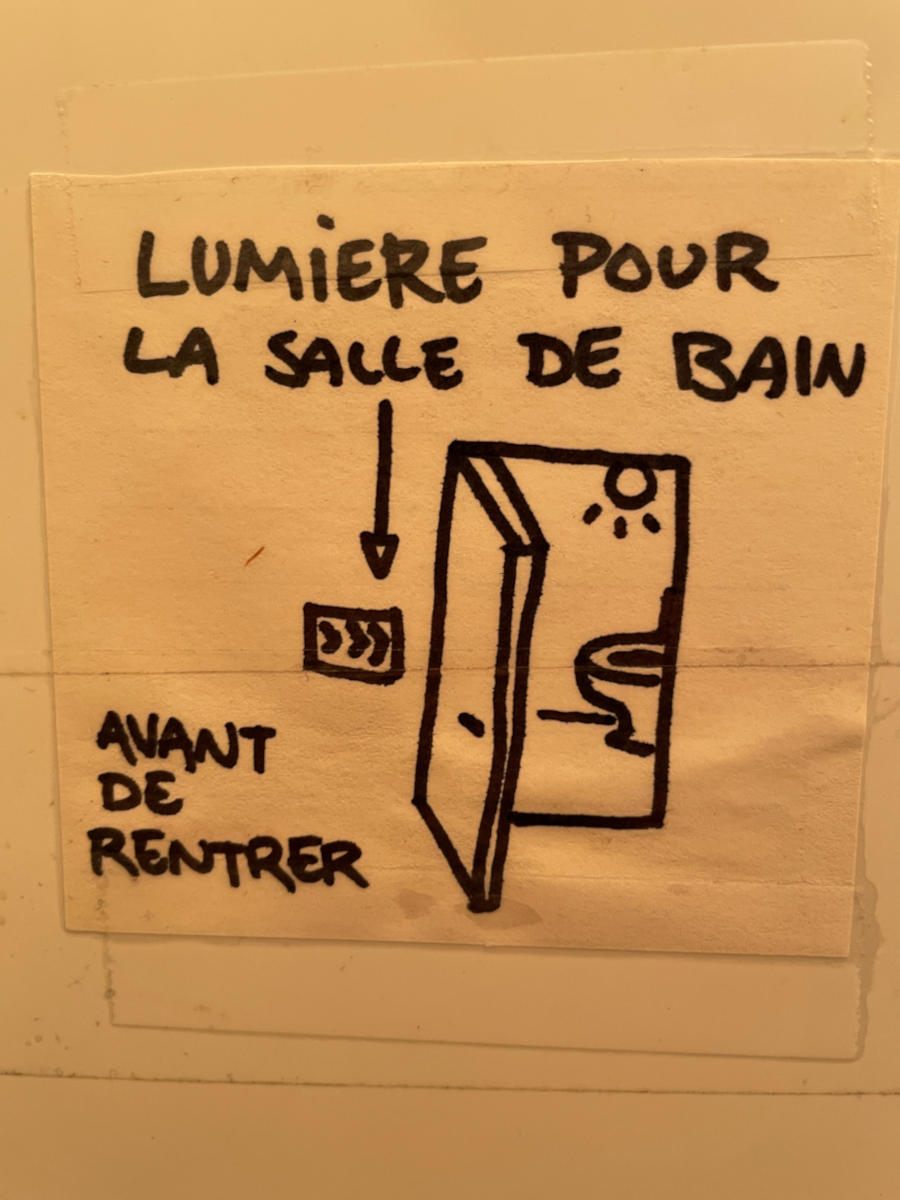 LUMiERE POUR
LA SALLE DE BAIN
AVANT
DE
RENTRER